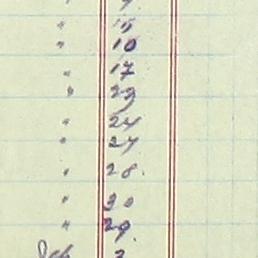 " 15
" 10
" 17
" 23
" 24
" 27
" 28.
" 30
" 29.